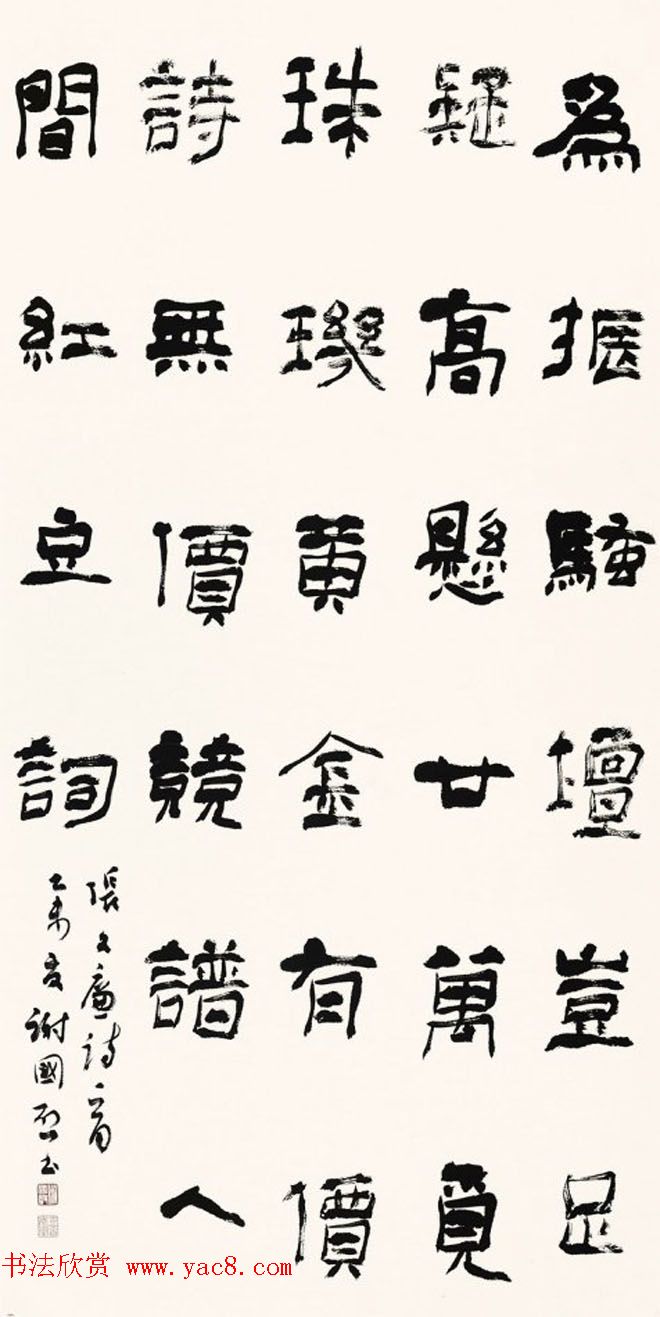 為振騷壇豈足
疑高懸廿萬覓
珠璣黃金有價
詩無價競譜人
間紅豆詞
張文廉詩一首
乙未夏謝國啟书
书法欣赏 www.yac8.com